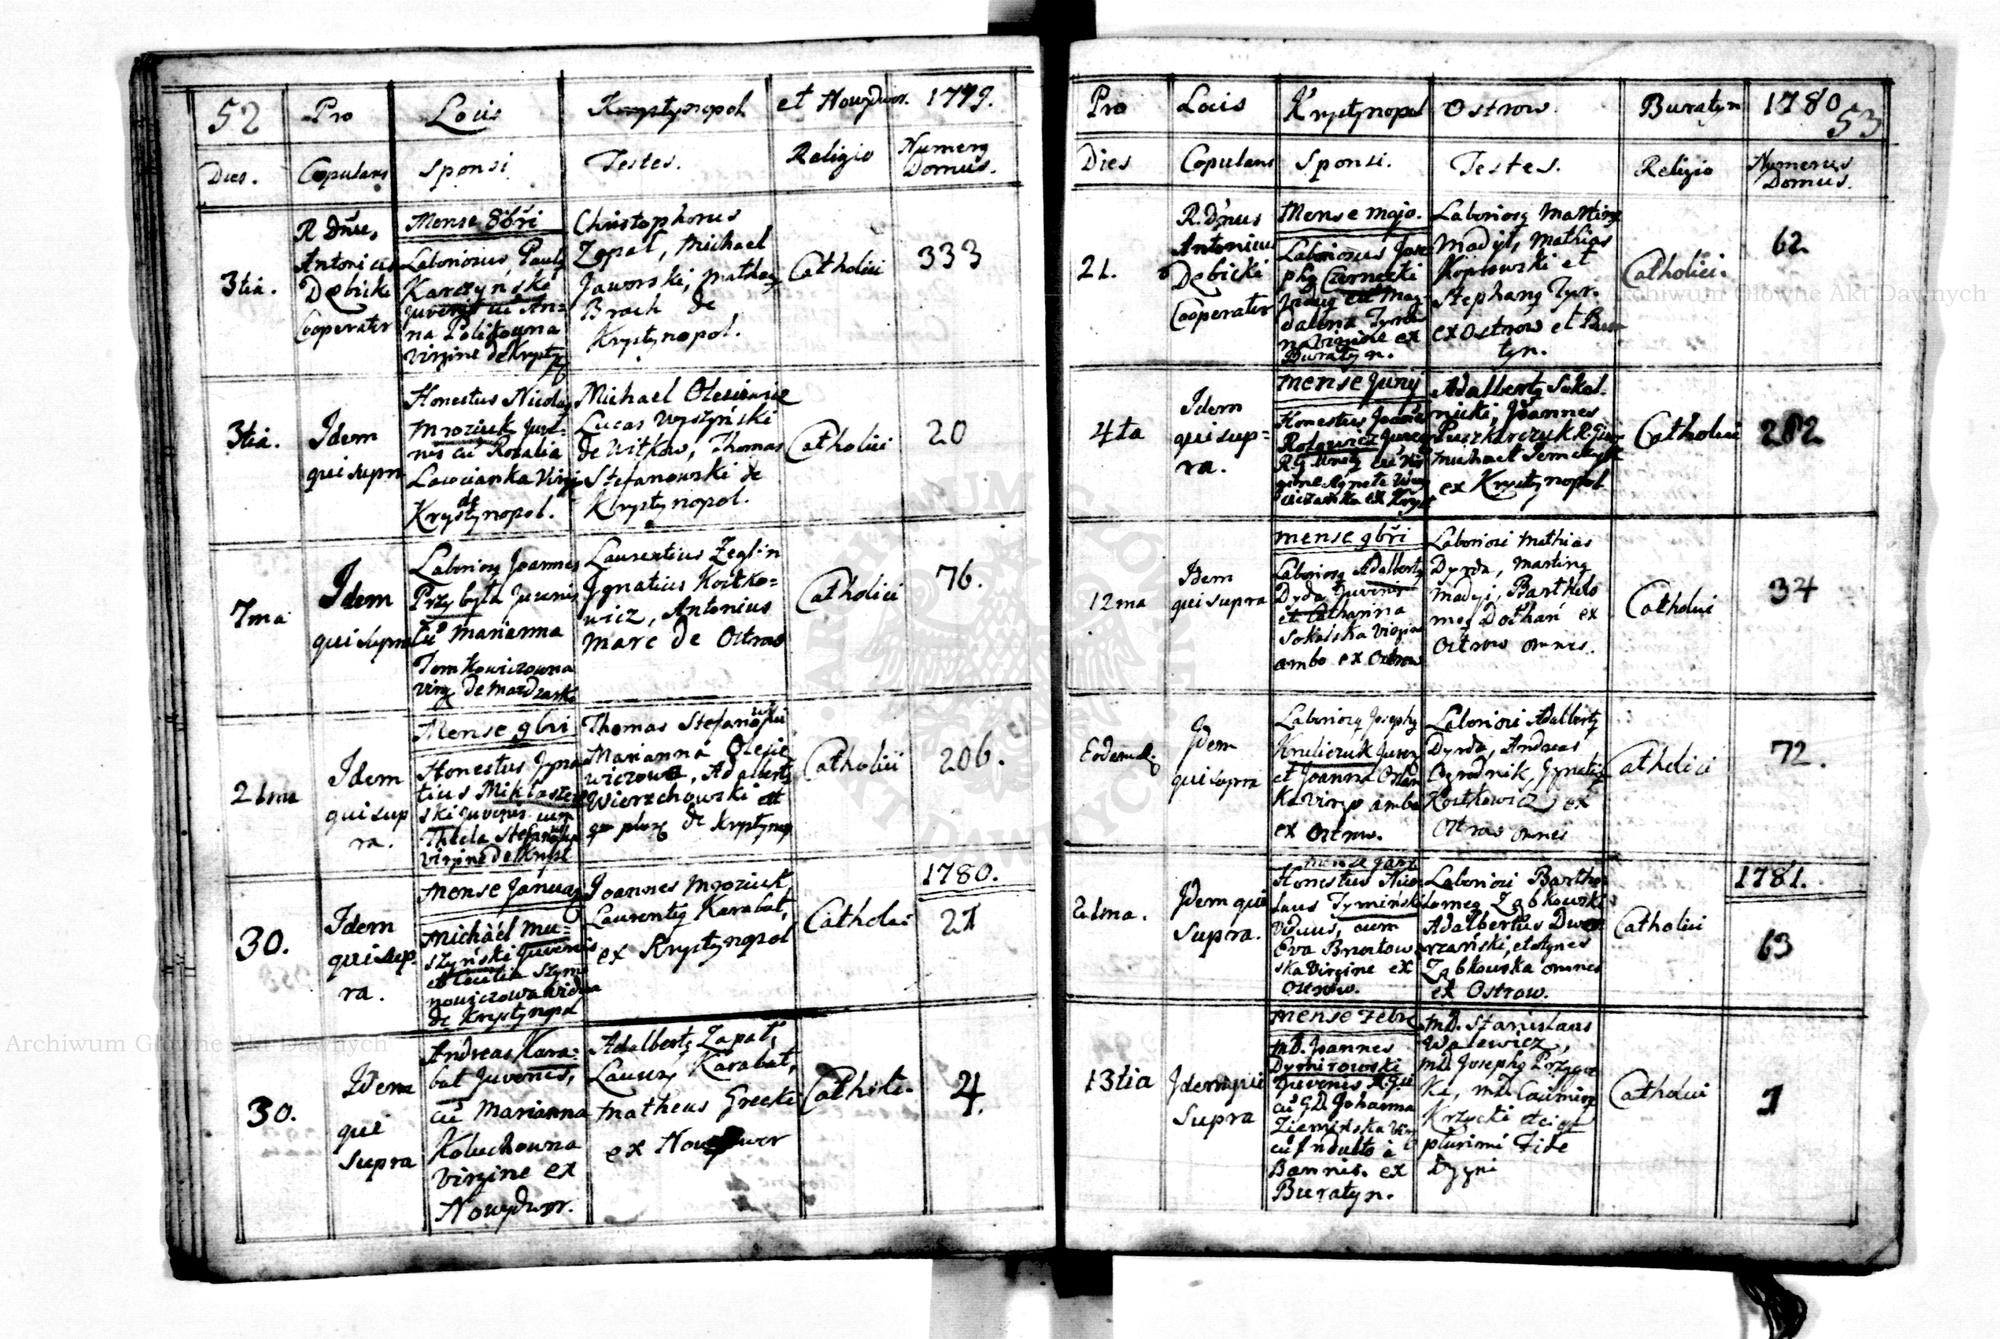 52 Pro Locis Krystynopol et Nowydwor. 1779.
Dies. Copulans Sponsi Testes. Religio Numerq Domus.
3tia.
R. dñus,
Antonius
Dębicki
Cooperator
Mense 8bri
Laboriosus, Paulq
Karczyński
juvenis cū An-
na Politowna
virgine de Krysty
Christophorus
Zapał, Michael
Jaworski, Mathæq
Brach de
Krystynopol.
Catholici
333
3tia.
Idem
qui supra
Honestus Nicolaq
Mroziuk juve-
nis cū Rosalia
Virgi
de
Krystynopol.
Michael Olesiewic
Lucas Wyszyński
de Witków, Thomas
Stefanowski de
Krystynopol.
Catholici
20
7ma
Idem
qui supra
Laboriosq Joannes
Przybyła juvenis
cū Marianna
Tomkowiczowna
virg
Laurentius Zeglin
Ignatius Kostko-
wicz, Antonius
Marc de Ostrow
Catholici
76.
21ma
Idem
qui sup
ra.
Mense 9bri
Honestus Igna
tius Miklaszew
ski juvenis cum
Thecla Stefanowska
virgine de Kryst
Thomas Stefanowski
Marianna Olesie
wiczowa, Adalbertq
Wierzchowski et
de Krystynop
Catholici
206.
30.
Idem
qui sup.
ra.
Mense Januarq
Michaël Mu-
szyński juvenis
et Szym
nowiczowa vidua
de Krystynopol
Joannes Mroziuk,
Laurentiq Karabat,
ex Krystynopol
Catholici
1780.
21
30.
Idem
qui
Supra
Andreas Kara-
bat juvenis,
cū Marianna
Kobuchowna
virgine ex
Nowydwor.
Adalbertq Zapał,
Laurq Karabat,
Matheus Grecki
ex Nowydwor
Catholici
4.
Pro Locis Krystynopol Ostrow. Buratyn 1780 53
Dies Copulans Sponsi. Testes. Religio Numerus Domus.
21.
R. Dñus
Antonius
Dębicki
Cooperator
Mense majo.
Laboriosus Jose
phq Czernecki
viduq cū Mag
dalena
virgine ex
Buratyn.
Laboriosq Martinq
Madył, Mathias
Kopłowski et
Stephanq Tyr.
ex Ostrow et Bura
tyn.
Catholici.
62
4ta
Idem
qui sup-
ra.
Mense Junij
Honestus Joannes
juvenis
ex Kryst
Adalbertq Sokol.
nicki, Joannes
Puszkarczuk
Michael
ex Krystynopol
Catholici
202
12ma
Idem
qui supra
Mense 9bri
Laboriosq Adalbertq
Dyrda juvenis
et Catharina
Sokolska virgine
ambo ex Ostrow
Laboriosi Mathias
Dyrda, Martinq
Madyi, Bartholo
meq Dochań ex
Ostrow omnes.
Catholici
34
Eodem d.
Idem
qui supra
Laboriosq Josephq
Kruliczuk juven
et Joanna
virgo ambo
ex Ostrow.
Laboriosi Adalbertq
Dyrda, Andreas
Ogrodnik, Ignatiq
Kostkowicz ex
Ostrow omnes
Catholici
72.
21ma.
Idem qui
Supra.
Mense Janr
Honestus Nico
laus Tyminski
viduus, cum
Eva
ska virgine ex
Ostrow.
Laboriosi Bartho
lomeq Ząbkowski
Adalbertus Dwo
rzański, et Agnes
Ząbkowska omnes
ex Ostrow.
Catholici
1781.
63
13tia
Idem qui
Supra
Mense Febr
MD. Joannes
Dymirowski
juvenis
cū GD. Johanna
Ziemińska
cū Indulto à
Bannis. ex
Buratyn.
MD. Stanislaus
Walewicz,
MD. Josephq
MD. Casimirq
Krzycki
plurimi Fide
Digni
Catholici
1
Archiwum Główne Akt Dawnych
Archiwum Główne Akt Dawnych
ARCHIWUM GŁÓWNE AKT DAWNYCH